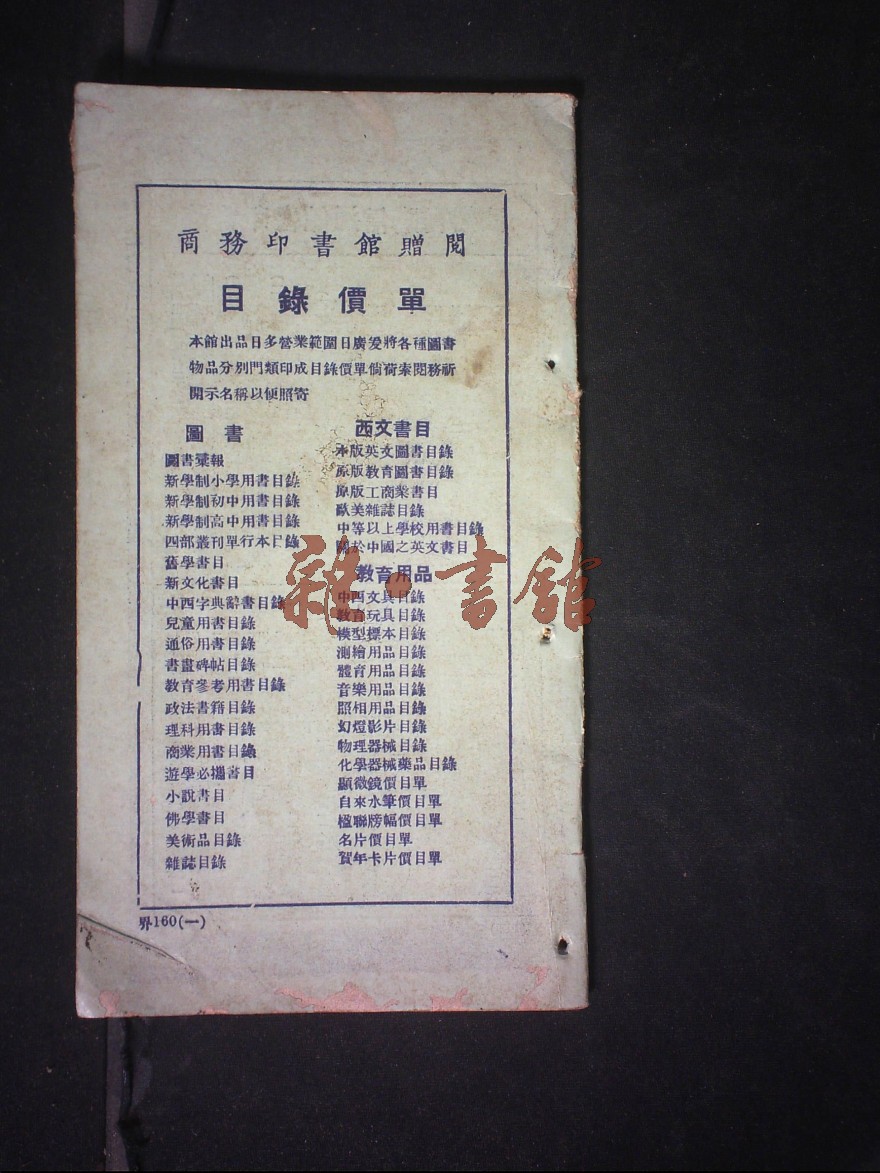 商務印書館贈閱
目錄價單
本館出品日多營業範圍日廣爰將各種圖書
物品分別門類印成目錄價單倘荷索閱務祈
開示名稱以便照寄
圖書
圖書彙報
新學制小學用書目錄
新學制初中用書目錄
新學制高中用書目錄
四部叢刊單行本目錄
舊學書目
新文化書目
中西字典辭書目錄
兒童用書目錄
通俗用書目錄
書畫碑帖目錄
教育參考用書目錄
政法書籍目錄
理科用書目錄
商業用書目錄
遊學必攜書目
小說書目
佛學書目
美術品目錄
雜誌目錄
西文書目
本版英文圖書目錄
原版教育圖書目錄
原版工商業書目
歐美雜誌目錄
中等以上學校用書目錄
關於中國之英文書目
教育用品
中西文具目錄
教育玩具目錄
模型標本目錄
測繪用品目錄
體育用品目錄
音樂用品目錄
照相用品目錄
幻燈影片目錄
物理器械目錄
化學器械藥品目錄
顯微鏡價目單
自來水筆價目單
楹聯牓幅價目單
名片價目單
賀年卡片價目單
界160(一)
雜·書館